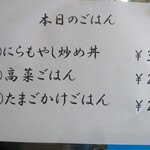 本日のごはん
にらもやし炒め丼 ¥
高菜ごはん ¥2
たまごかけごはん ¥2